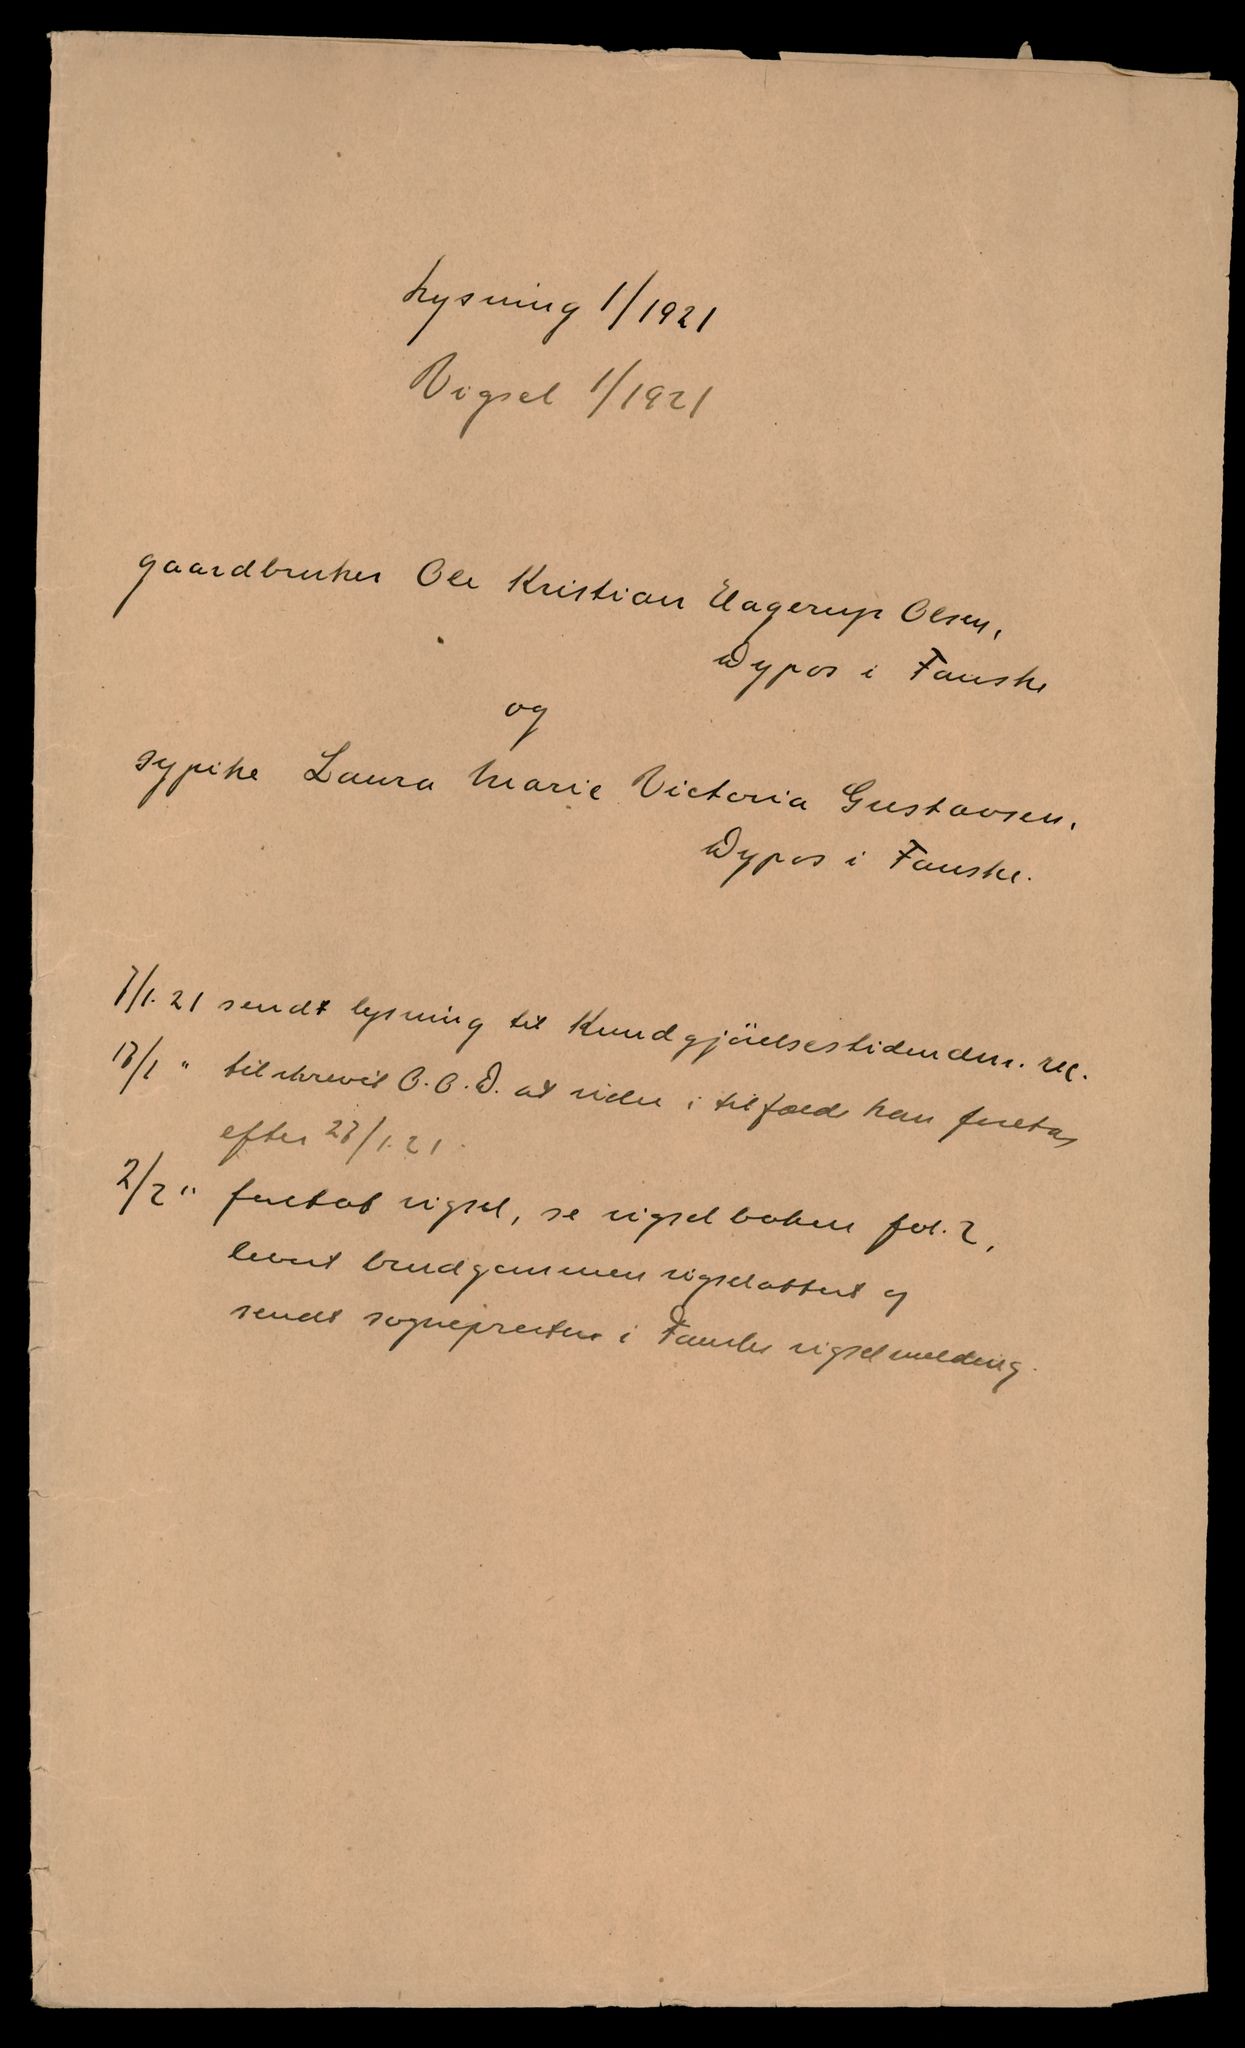 Lysning 1/1921
Vigsel 1/1921
gaardbruker Ole Kristian Hagerup Olsen,
Dypos i Fauske
og
sypike Laura Marie Victoria Gustavsen,
Dypos i Fauske.
7/1. 21 sendt lysning til Kundgjörelsestidenden. rec.
13/1 " tilskrevet O. O. D. at vielse i tilfælde kan foretas
efter 23/1. 21.
2/2 " foretat vigsel, se vigselboken fol. 2,
levert brudgommen vigselattest og
sendt sognepresten i Fauske vigselmelding.